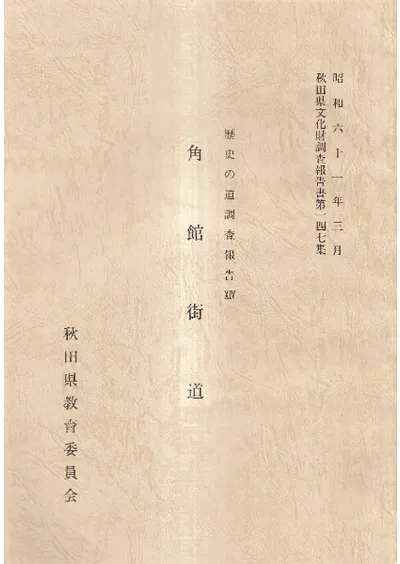 昭和六十一年三月
秋田県文化財調査報告書第一四七集
歴史の道調査報告
角館街道
秋田県教育委員会